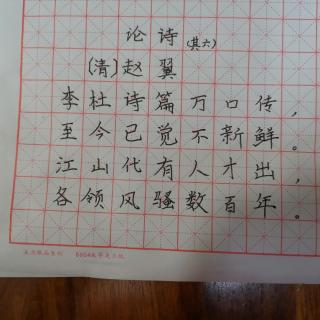 论诗(其六)
(清)赵翼
李杜诗篇万口传，
至今已觉不新鲜。
江山代有人才出，
各领风骚数百年。